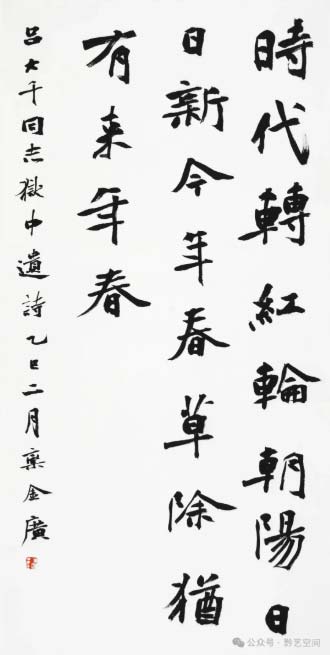 時代轉紅輪朝陽日
日新今年春草除猶
有来年春
吕大千同志獄中遺詩乙巳二月葉金廣
公众号·黔艺空间